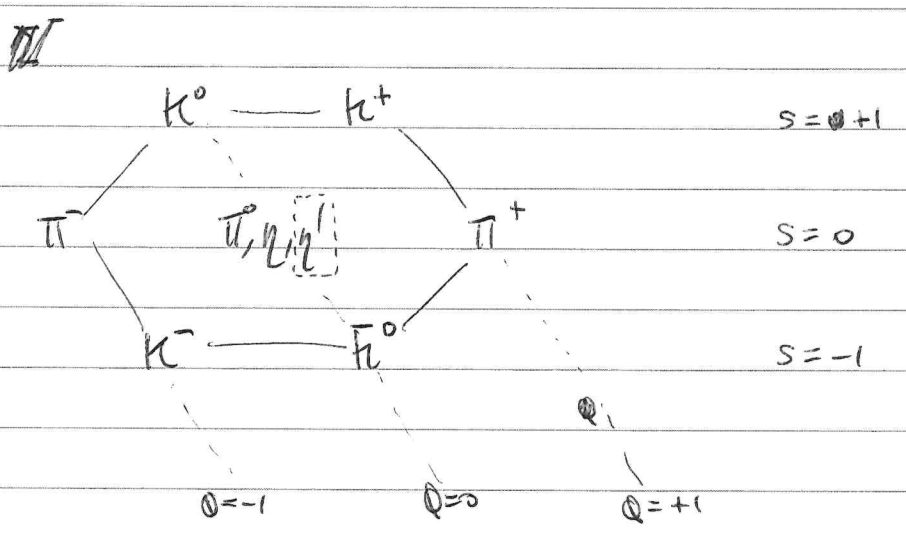 K⁰ K⁺ S = +1
π⁻ π⁰, η, η′ π⁺ S = 0
K⁻ K̄⁰ S = -1
Q=-1 Q=0 Q=+1